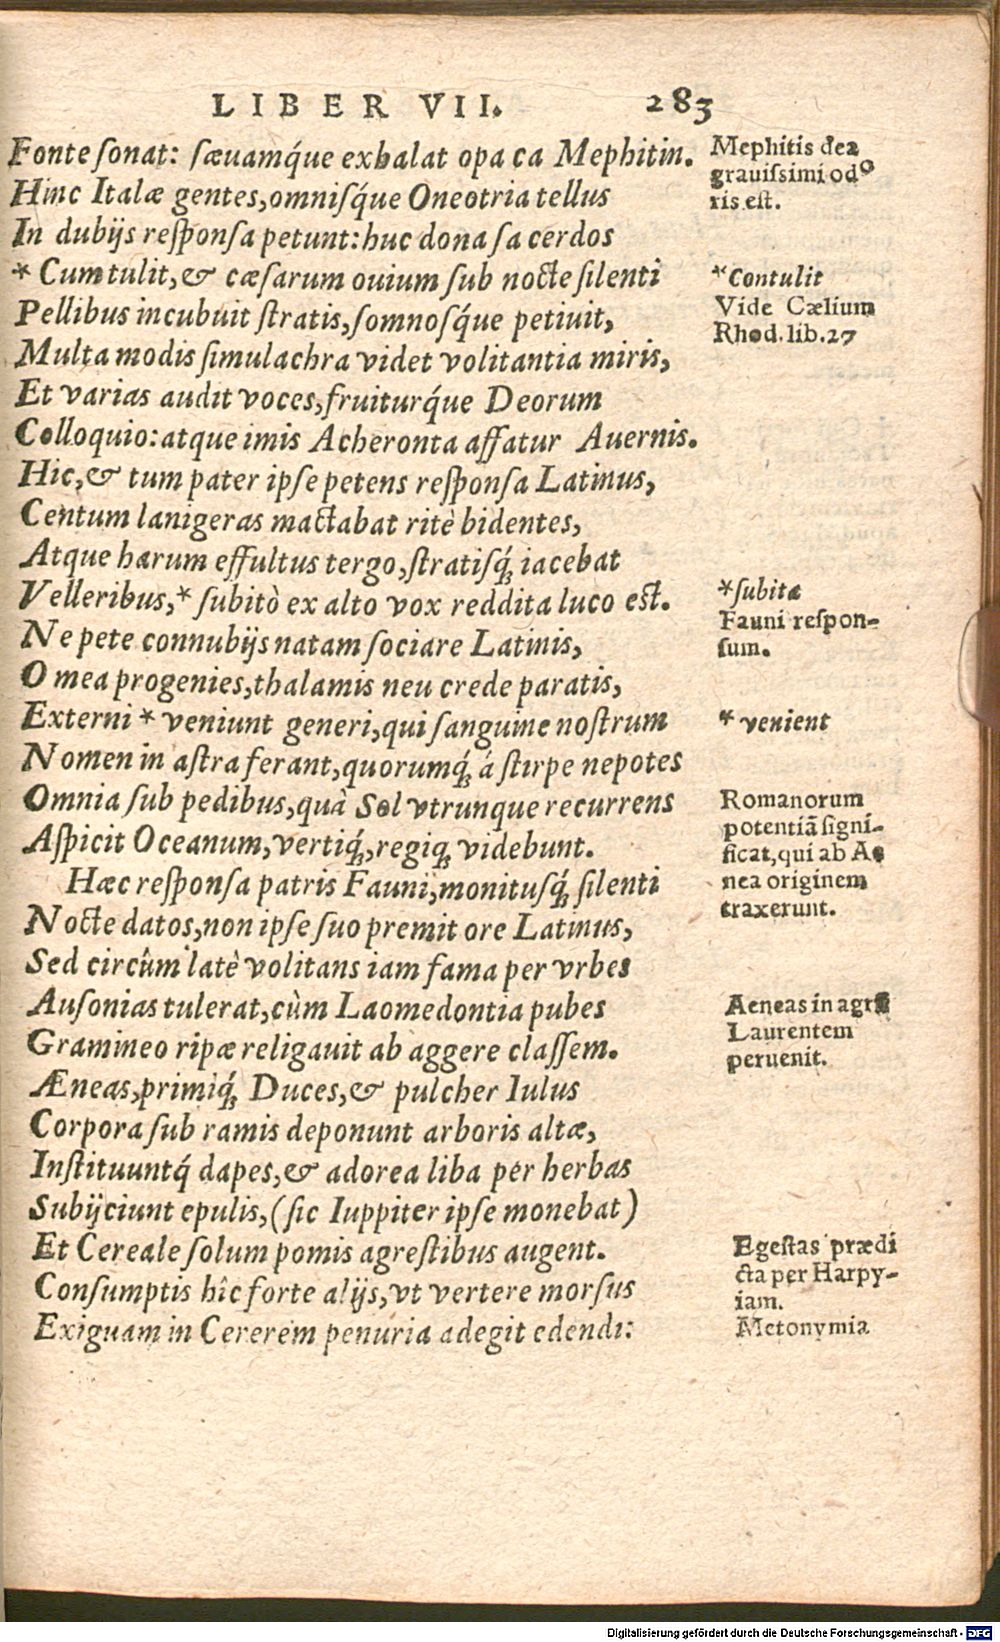 LIBER VII. 283
Fonte sonat: sæuamq́ue exhalat opaca Mephitin.
Hinc Italæ gentes, omnisq́ue Oneotria tellus
In dubijs responsa petunt: huc dona sacerdos
* Cum tulit, & cæsarum ouium sub nocte silenti
Pellibus incubuit stratis, somnosq́ue petiuit,
Multa modis simulachra videt volitantia miris,
Et varias audit voces, fruiturq́ue Deorum
Colloquio: atque imis Acheronta affatur Auernis.
Hic, & tum pater ipse petens responsa Latinus,
Centum lanigeras mactabat ritè bidentes,
Atque harum effultus tergo, stratisq́; iacebat
Velleribus, * subitò ex alto vox reddita luco est.
Ne pete connubijs natam sociare Latinis,
O mea progenies, thalamis neu crede paratis,
Externi * veniunt generi, qui sanguine nostrum
Nomen in astra ferant, quorumq́; á stirpe nepotes
Omnia sub pedibus, quà Sol vtrunque recurrens
Aspicit Oceanum, vertiq́;, regiq; videbunt.
Hæc responsa patris Fauni, monitusq́; silenti
Nocte datos, non ipse suo premit ore Latinus,
Sed circùm latè volitans iam fama per vrbes
Ausonias tulerat, cùm Laomedontia pubes
Gramineo ripæ religauit ab aggere classem.
Æneas, primiq́; Duces, & pulcher Iulus
Corpora sub ramis deponunt arboris altæ,
Instituuntq́ dapes, & adorea liba per herbas
Subijciunt epulis, (sic Iuppiter ipse monebat)
Et Cereale solum pomis agrestibus augent.
Consumptis hîc forte alijs, vt vertere morsus
Exiguam in Cererem penuria adegit edendi:
Mephitis dea
grauissimi odo
ris est.
*Contulit
Vide Cælium
Rhod. lib. 27
*subita
Fauni respon-
sum.
* venient
Romanorum
potentiã signi-
ficat, qui ab Ae
nea originem
traxerunt.
Aeneas in agrū
Laurentem
peruenit.
Egestas prædi
cta per Harpy-
iam.
Metonymia
Digitalisierung gefördert durch die Deutsche Forschungsgemeinschaft - DFG